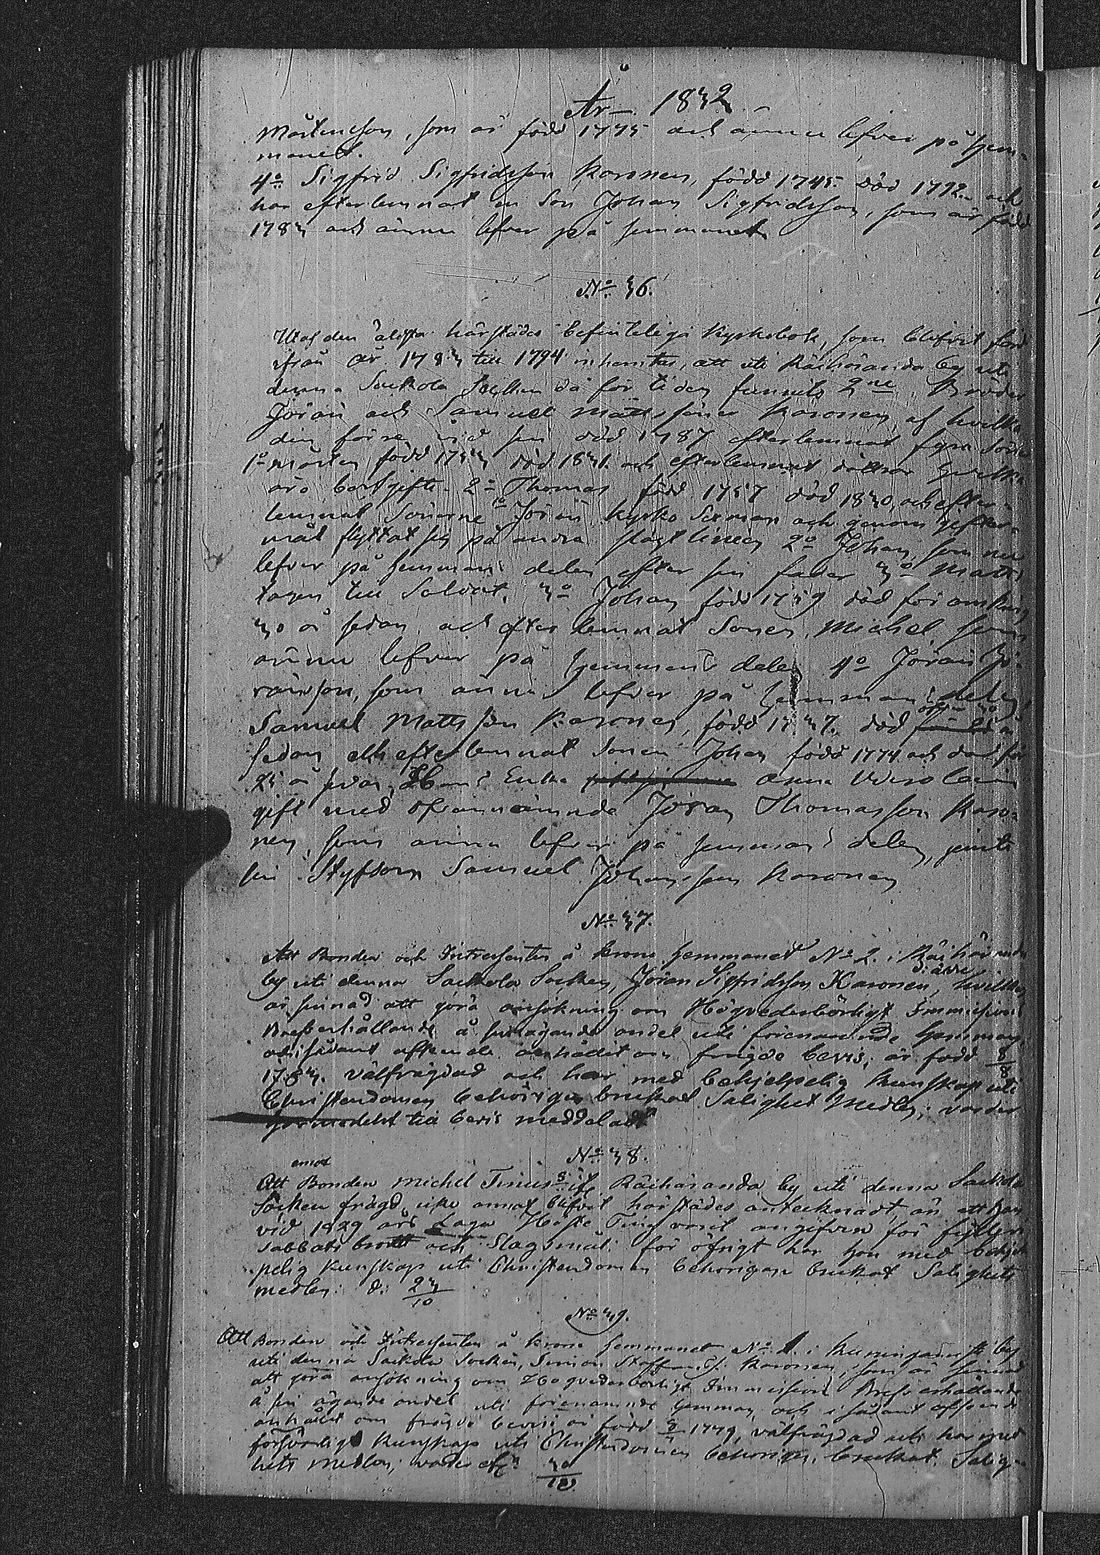 År 1832
Mårtensson, som är född 1775 och ännu lefver på hem-
manet.
4o Sigfrid Sigfridsson Karonen, född 1745 död 1792 och
har efterlemnat en Son Johan Sigfridsson, som är född
1783 och ännu lefver på hemmanet
No 36.
Utaf den äldsta härstädes befinteliga Kyrkobok, som blifvit förd
ifrån år 1783 till 1794 inhemtas, att uti Räihäranda by uti
denna Sackola Socken då för tiden funnits 2ne Bröder
Jöran och Samuel Mattssöner Karonen, af hvilka
den förre vid sin död 1787 efterlemnat fyra Söner
1o Mårten född 1753 död 1831 och efterlemnat döttrar hvilka
äro bortgifte 2o Thomas född 1757 död 1830, och efter-
lemnat Sönerne Jöran, Kyrko Sexman och genom gifter-
mål flyttat sig på andra slägt linien 2o Johan, som nu
lefver på hemmans delen efter sin fader 3o Matts
tagen till Soldat. 3o Johan född 1759 död för omkring
30 år sedan och efterlemnat Sonen Michel som
ännu lefver på hemmans delen 4o Jöran Jö-
ransson, som ännu lefver på hemmans delen
Samuel Mattsson Karonen, född 1737. död
sedan och efterlemnat Sonen Johan född 1774 och död för
25 år sedan, Hans Enka Anna
gift med ofvannämnde Jöran Thomasson Karo-
nen, som ännu lefver på hemmans delen, jemte
sin Styfson Samuel Johansson Karonen
No 37.
Att Bonden och Intressenten å krono hemmanet No 2. i Räihäranda
by uti denna Sackola Socken, Jöran Sigfridsson Karonen, hvilken
är sinnad att göra ansökning om Högvederbörligt Immissions
Brefs erhållande å sin ägande andel uti förenämnde hemman,
och i sådant afseende anhållit om frägde bevis, är född 8/8
1783. välfrägdad och har med behjelpelig kunskap uti
Christendomen behörigen brukat Salighets Medlen; varder
härmedelst till bevis meddeladt
No 38.
emot
Att Bonden Michel Simonss: ifr. Räihäranda by uti denna Sackola
Socken frägd icke annat blifvit härstädes antecknadt, än att han
vid 1829 års Laga Höste Ting varit angifven för fylleri
Sabbats brott och Slagsmål. för öfrigt har han med behjel-
pelig kunskap uti Christendomen behörigen brukat Salighets
medlen. d. 23/10
No 39.
Att Bonden och Intressenten å krono hemmanet No 1. i by
uti denna Sackola Socken, Simon Staffanss: Karonen, som är sinnad
att göra ansökning om Högvederbörligt Immissions Brefs erhållande
å sin ägande andel uti förenämnde hemman, och i sådant afseende
anhållit om frägde bevis är född 1779, välfrägdad och har med
försvarlig kunskap uti Christendomen behörigen brukat Salig-
hets medlen; varder etc 30/10